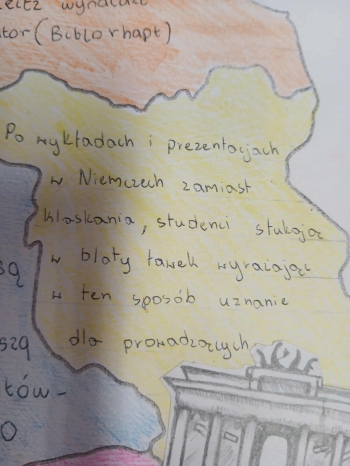 eitz wynalazł
tor (Biblorhapt)
Po wykładach i prezentacjach
w Niemczech zamiast
klaskania, studenci stukają
w blaty ławek wyrażając
w ten sposób uznanie
dla prowadzących
są
szą
tów-
O